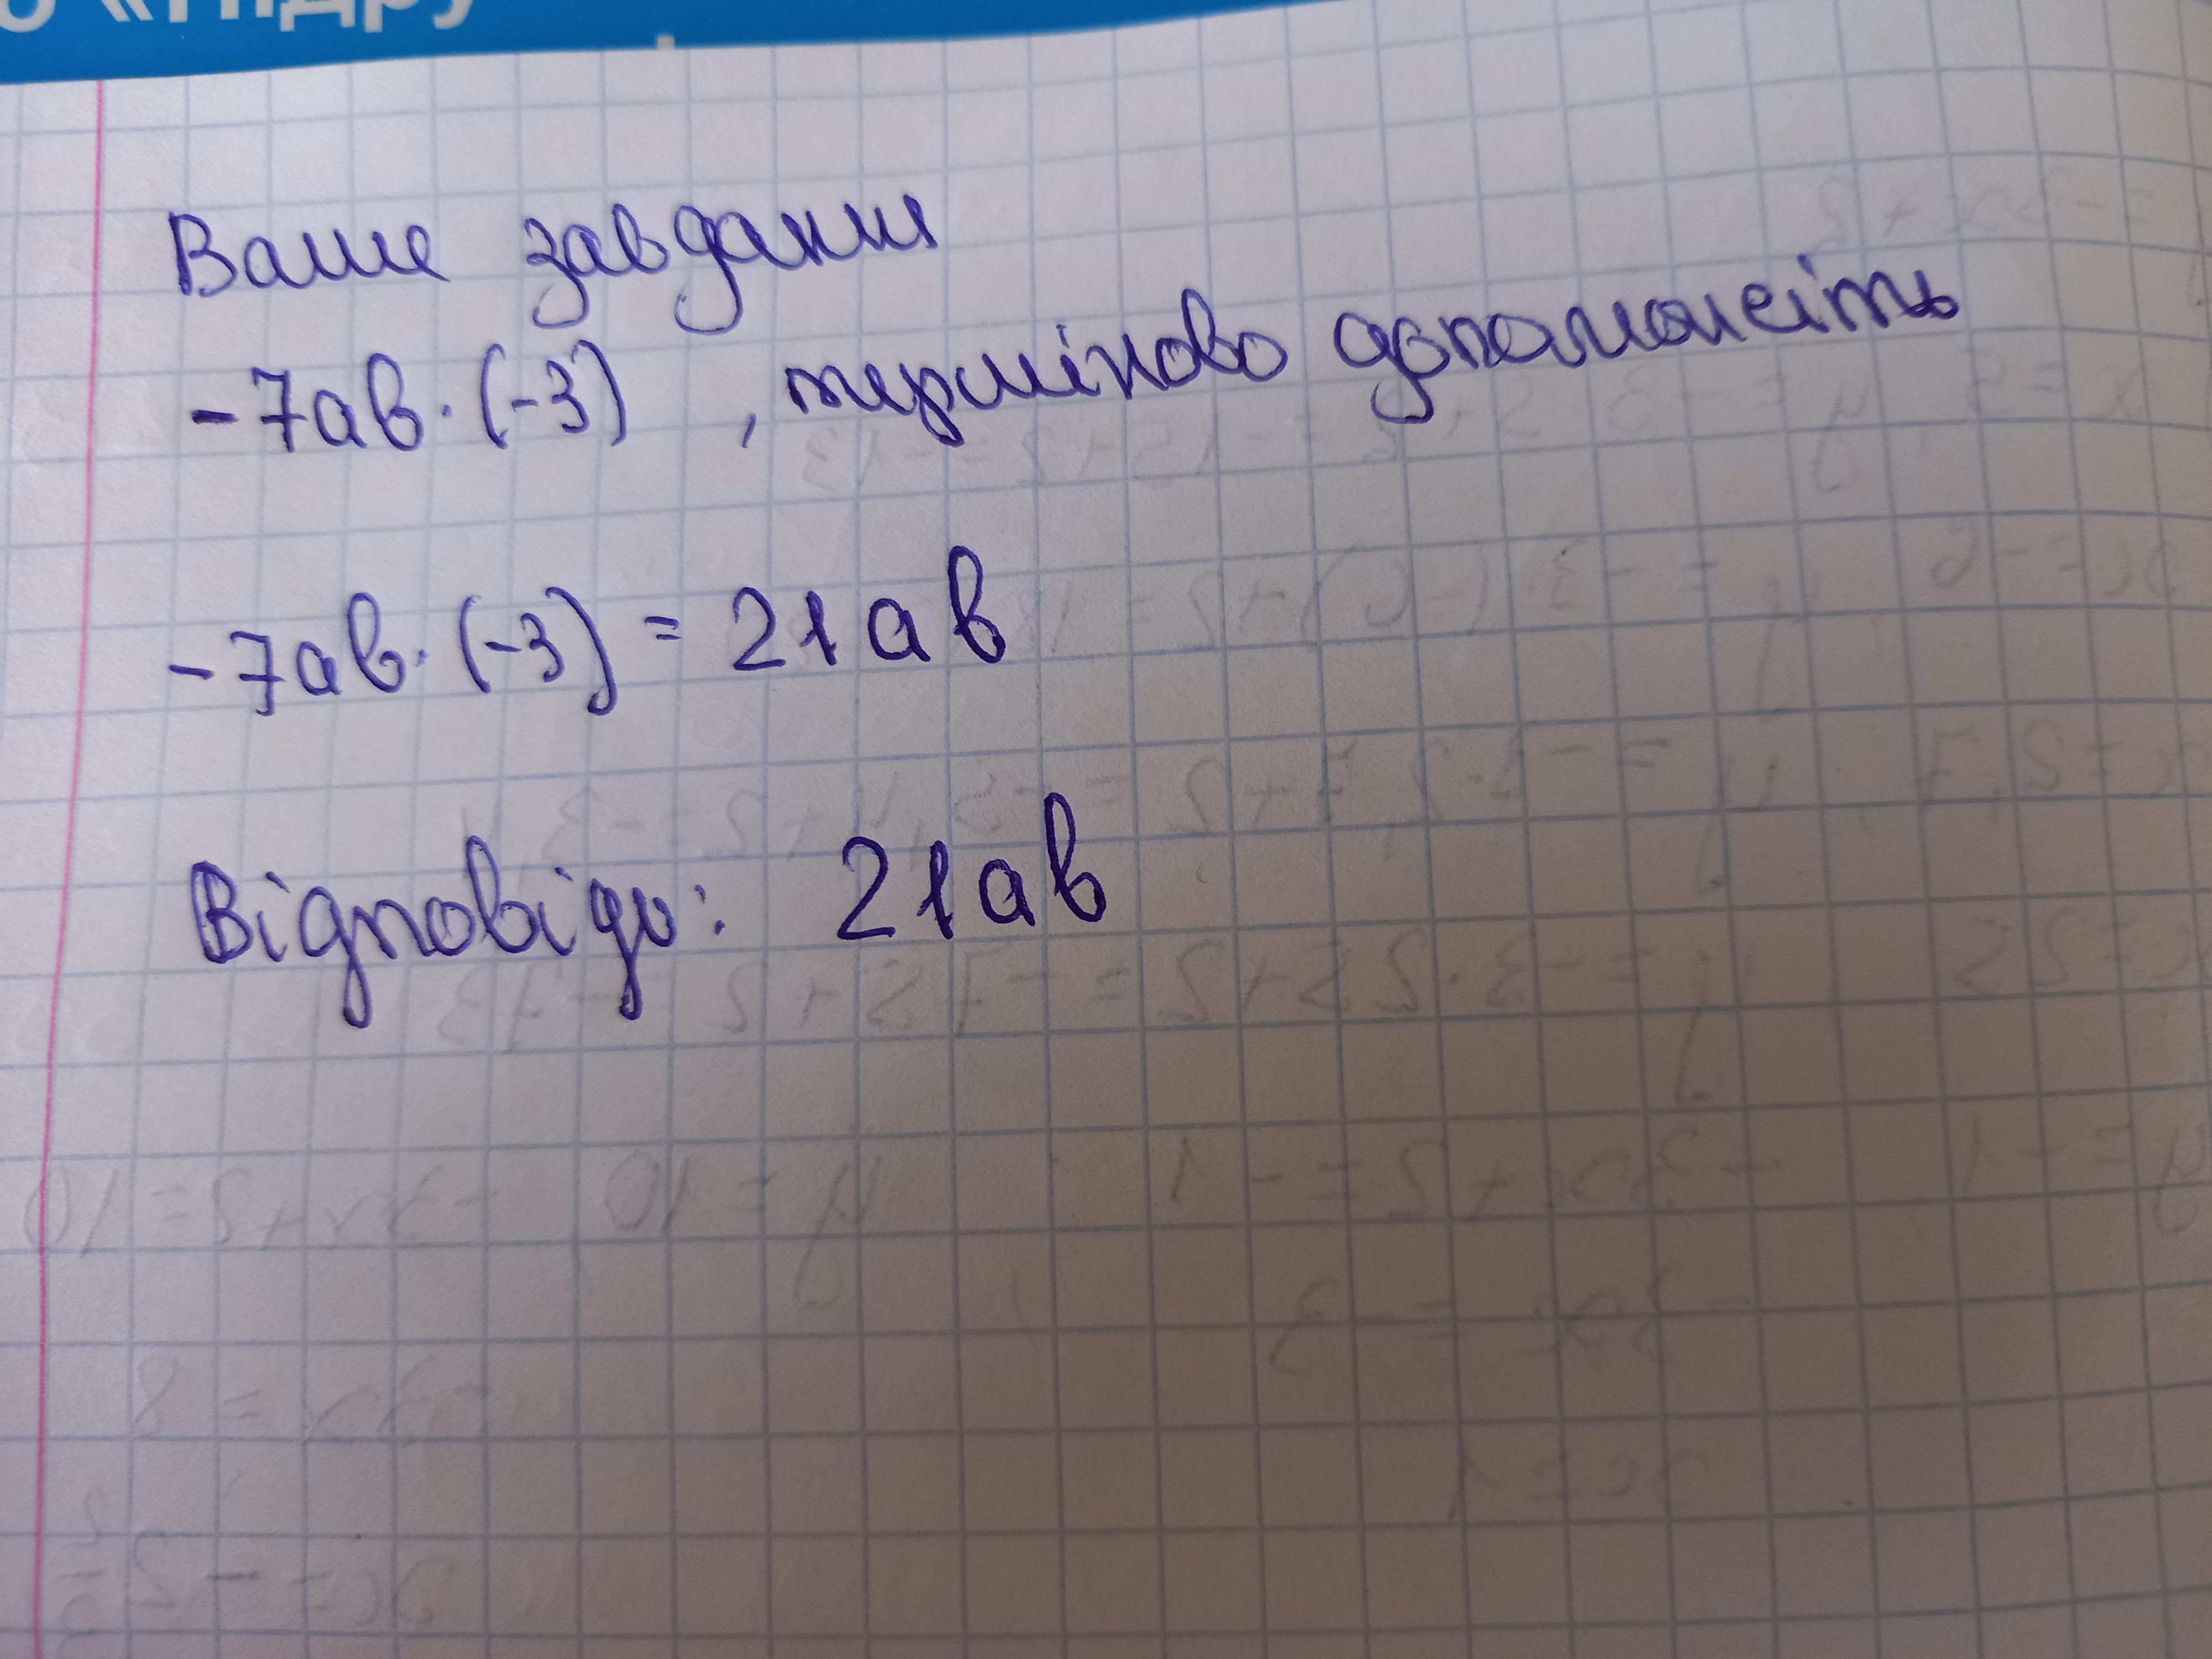 Ваше завдання
-7ав·(-3) , терміново допоможіть
-7ав·(-3) = 21ав
Відповідь: 21ав